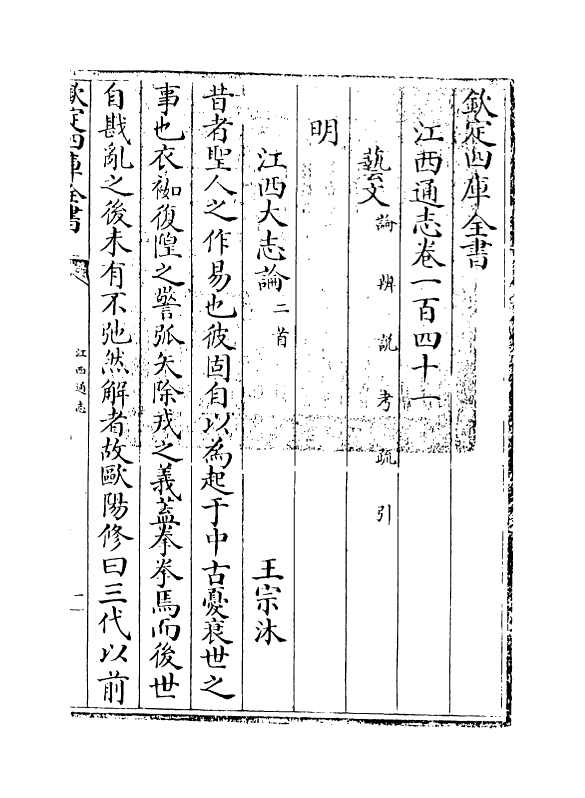 欽定四庫全書
江西通志卷一百四十一
藝文論 辨 説 考 疏 引
明
江西大志論二首 王宗沐
昔者聖人之作易也彼固自以為起于中古憂衰世之
事也衣袽復隍之警弧矢除戎之義蓋拳拳焉而後世
自戡亂之後未有不弛然解者故歐陽修曰三代以前
欽定四庫全書
江西通志
一